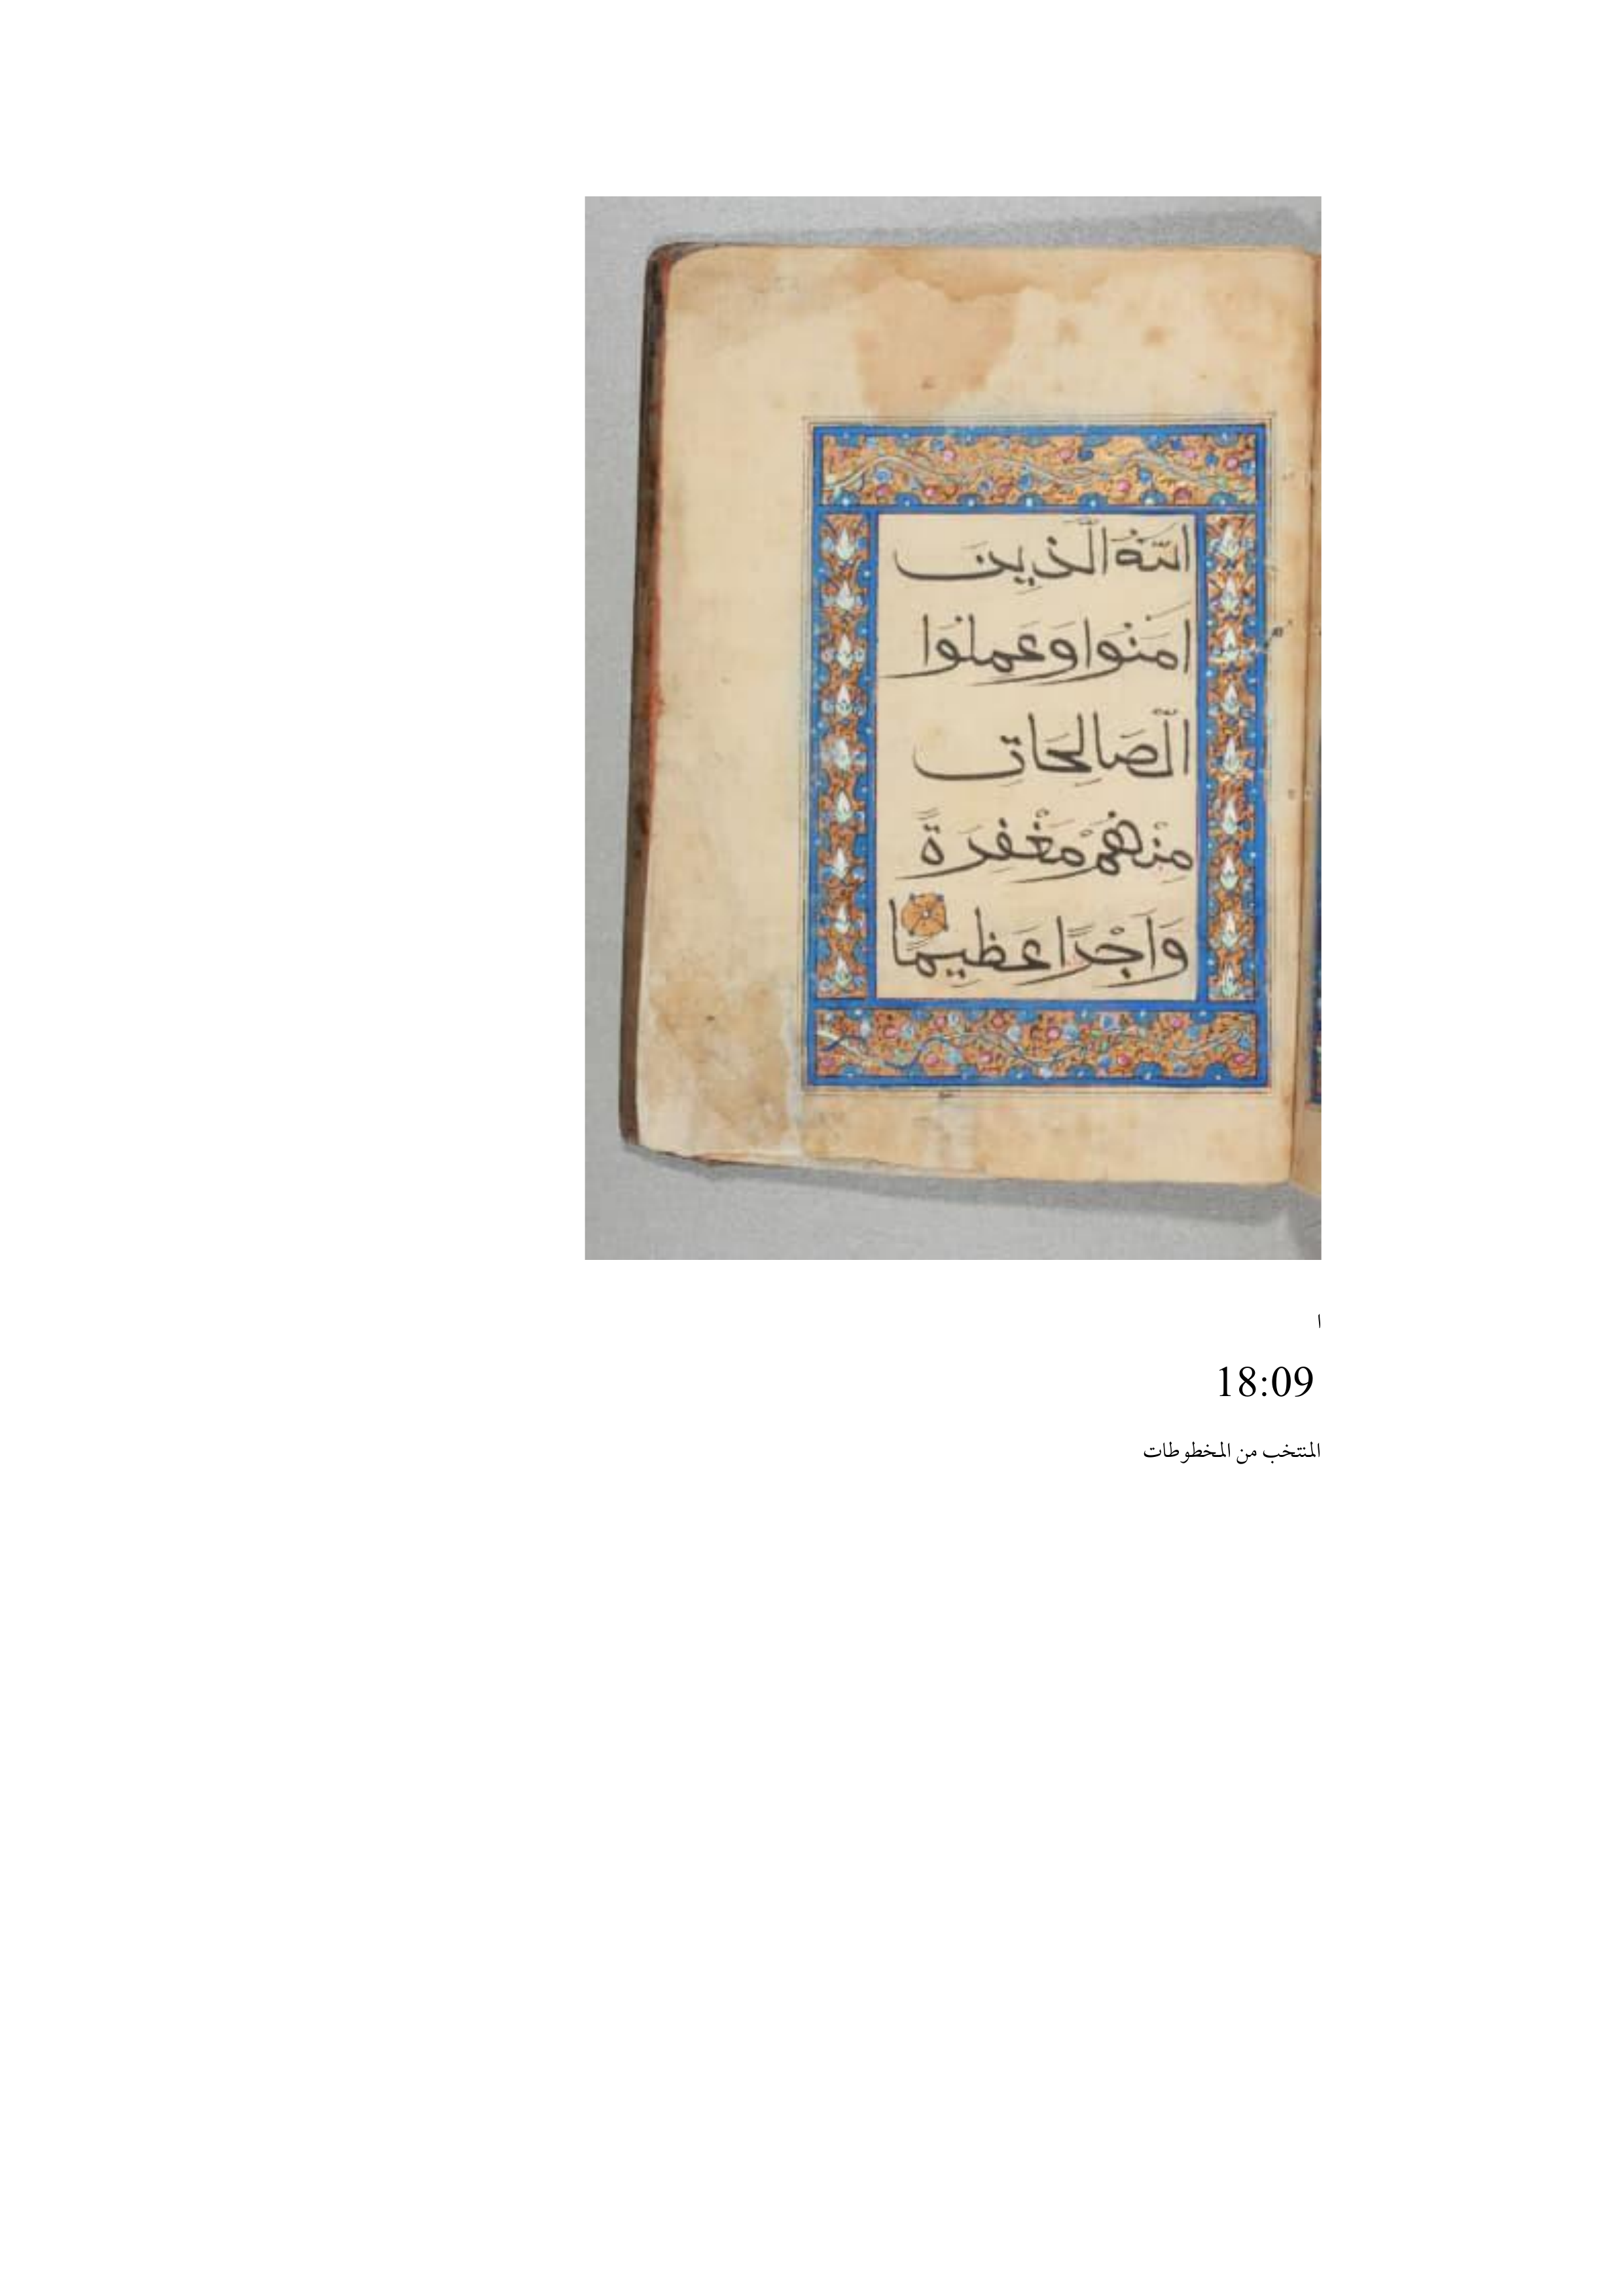 اللّٰهُ الَّذِينَ
اٰمَنُوا وَعَمِلُوا
الصَّالِحَاتِ
مِنْهُمْ مَغْفِرَةً
وَأَجْرًا عَظِيمًا
ا
18:09
المنتخب من المخطوطات